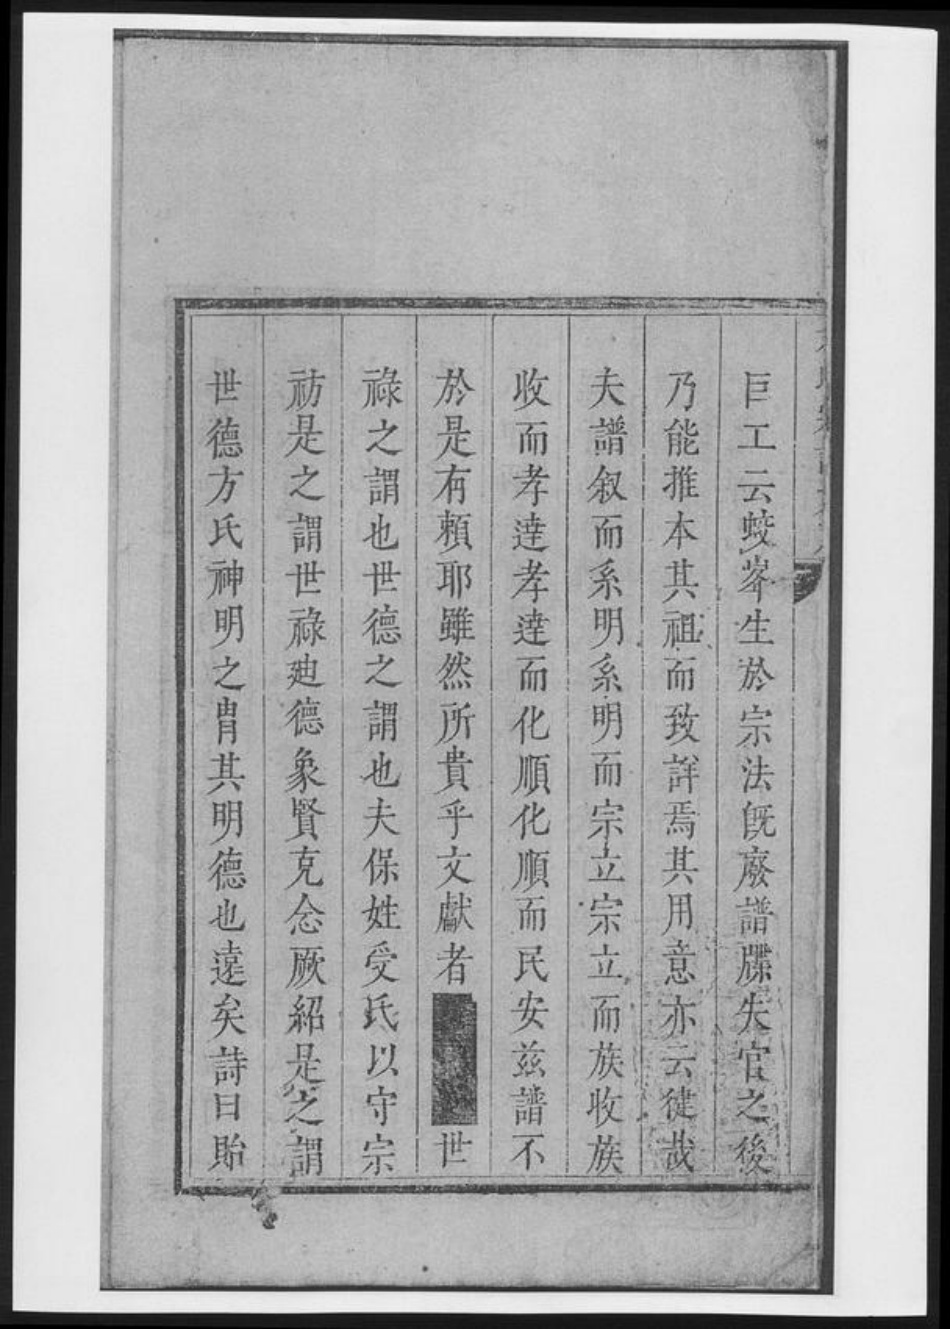 巨工云蛟峯生於宗法旣廢譜牒失官之後
乃能推本其祖而致詳焉其用意亦云徤哉
夫譜叙而系明系明而宗立宗立而族收族
收而孝達孝達而化順化順而民安兹譜不
於是有賴耶雖然所貴乎文獻者世
祿之謂也世德之謂也夫保姓受氏以守宗
祊是之謂世祿廸德象賢克念厥紹是之謂
世德方氏神明之胄其明德也遠矣詩曰貽